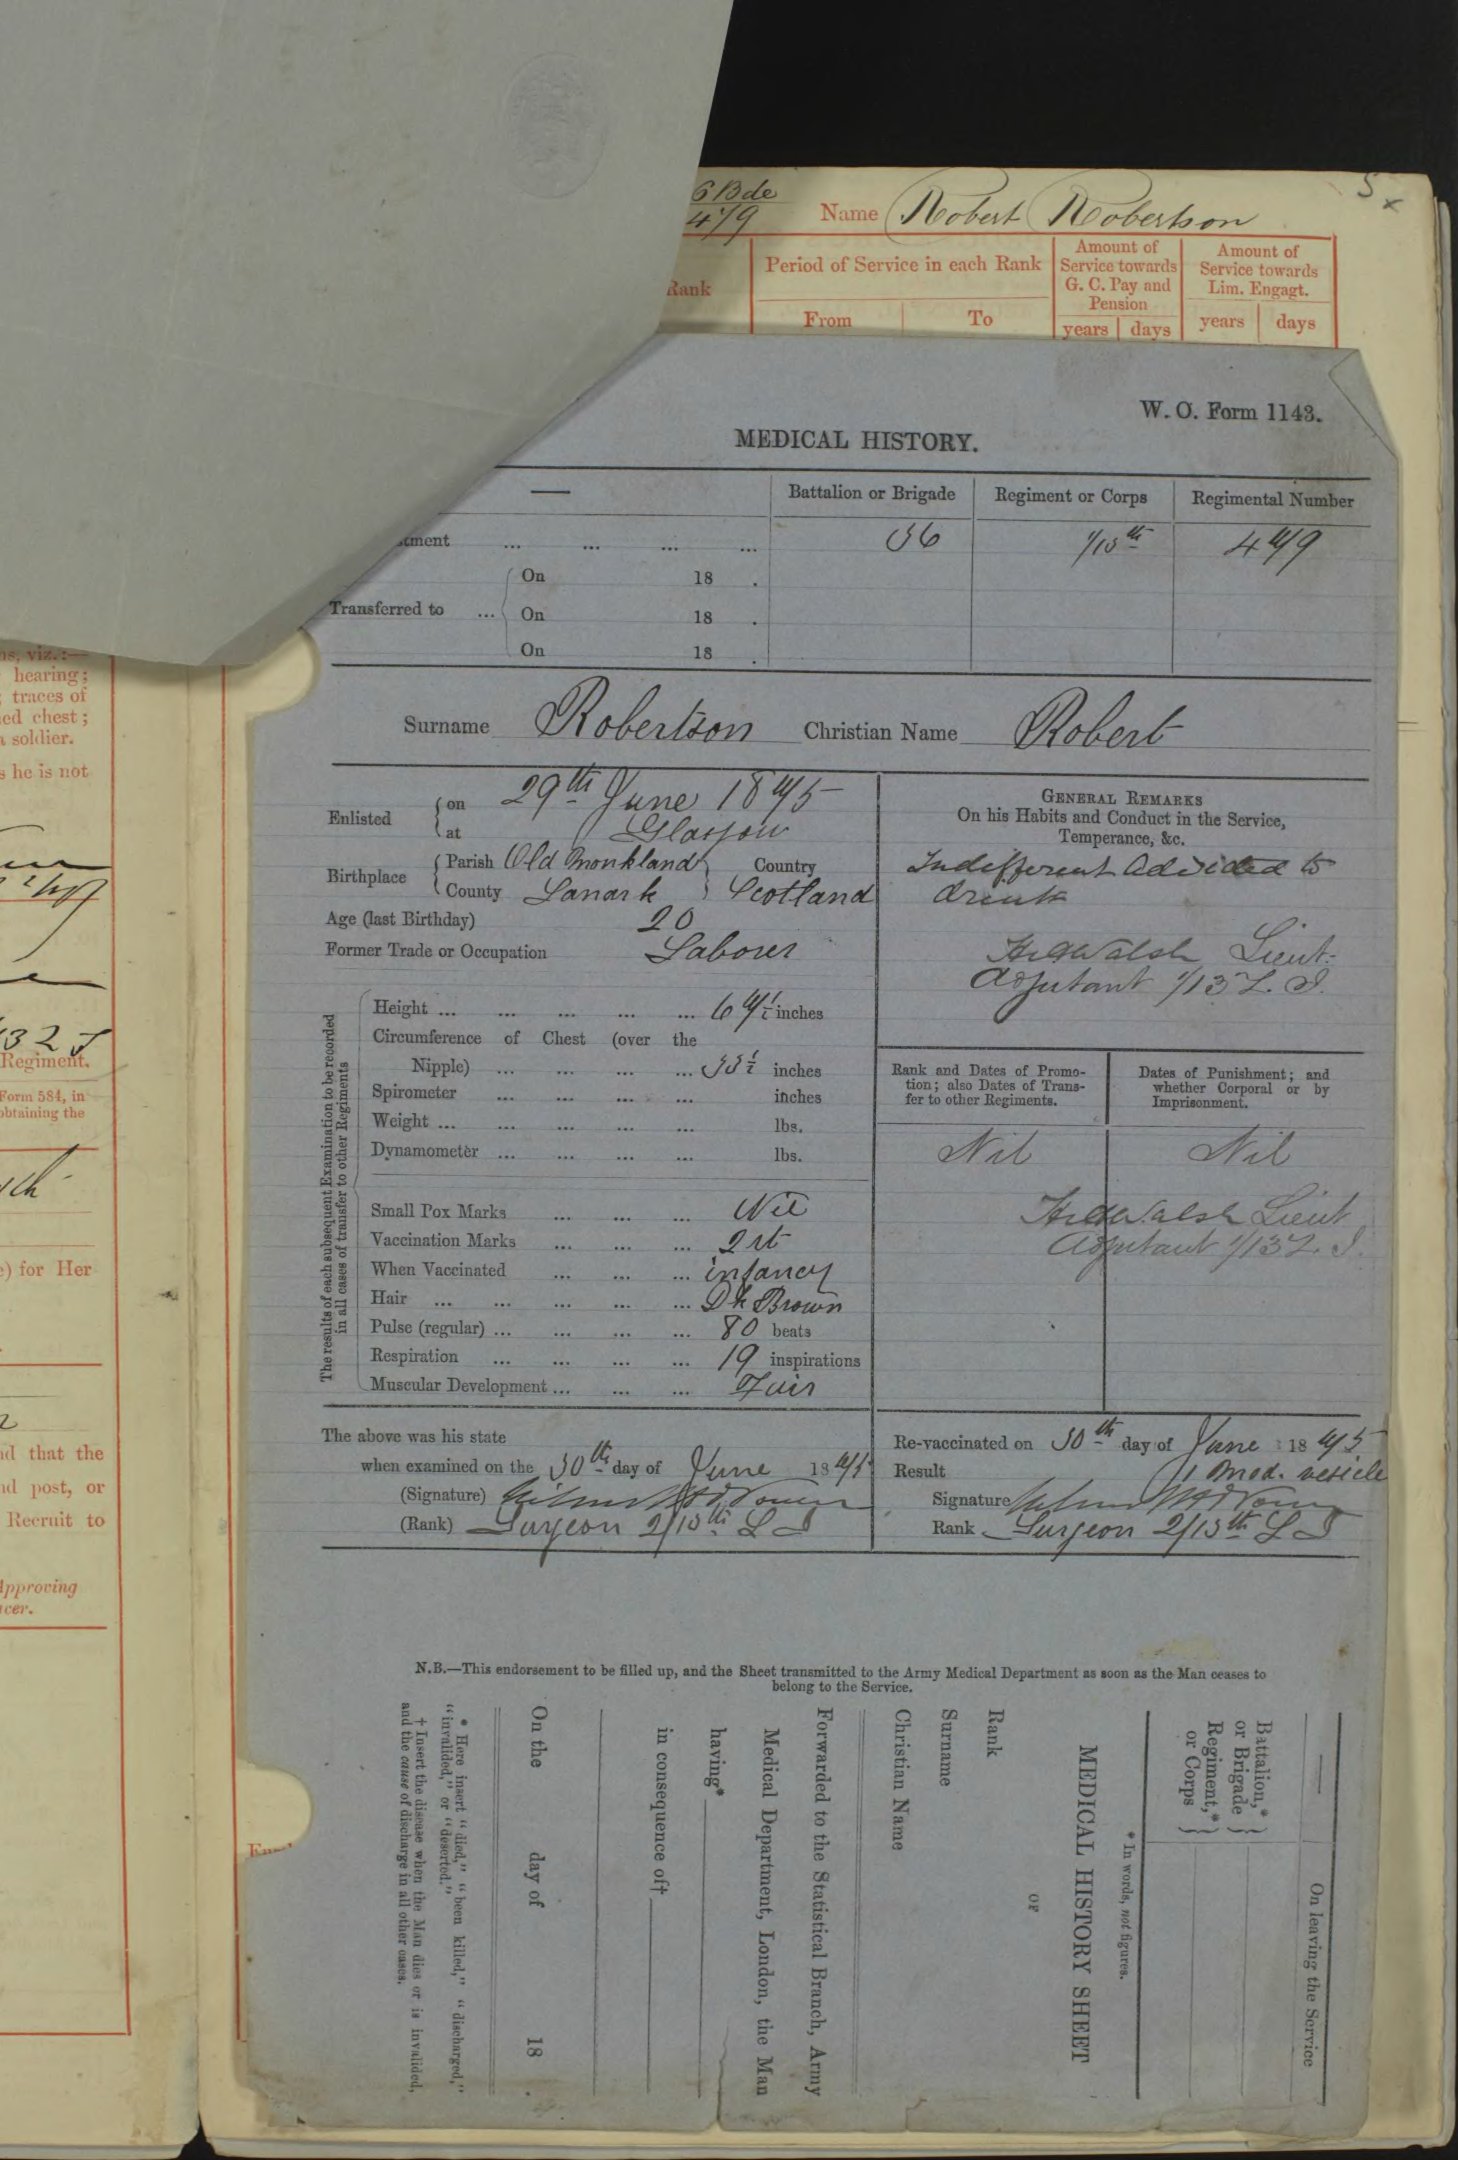 6 Bde
479
Name Robert Robertson
Rank
Period of Service in each Rank
Amount of Service towards G. C. Pay and Pension
Amount of Service towards Lim. Engagt.
From To years days years days
W. O. Form 1143.
MEDICAL HISTORY.
Battalion or Brigade Regiment or Corps Regimental Number
tment ... ... ... ... 36 1/13th 479
On 18 .
Transferred to ... On 18 .
On 18 .
Surname Robertson Christian Name Robert
Enlisted on 29th June 1875
at Glasgow
Birthplace Parish Old Monkland Country
County Lanark Scotland
Age (last Birthday) 20
Former Trade or Occupation Laborer
GENERAL REMARKS
On his Habits and Conduct in the Service,
Temperance, &c.
Indifferent Addicted to
drink
Walsh Lieut.
Adjutant 1/13 L. I.
The results of each subsequent Examination to be recorded
in all cases of transfer to other Regiments
Height ... ... ... ... ... 67 1/2 inches
Circumference of Chest (over the
Nipple) ... ... ... ... 33 1/2 inches
Spirometer ... ... ... ... inches
Weight ... ... ... ... ... lbs.
Dynamometer ... ... ... ... lbs.
Small Pox Marks ... ... ... Nil
Vaccination Marks ... ... ... 2 rt
When Vaccinated ... ... ... infancy
Hair ... ... ... ... ... Dk Brown
Pulse (regular) ... ... ... ... 80 beats
Respiration ... ... ... ... 19 inspirations
Muscular Development ... ... ... Fair
Rank and Dates of Promo-
tion; also Dates of Trans-
fer to other Regiments.
Dates of Punishment; and
whether Corporal or by
Imprisonment.
Nil Nil
Walsh Lieut
Adjutant 1/13 L. I.
The above was his state
when examined on the 30th day of June 1875
(Signature)
(Rank) Surgeon 2/13th L I
Re-vaccinated on 30th day of June 1875
Result 1 mod. vesicle
Signature
Rank Surgeon 2/13th L I
N.B.—This endorsement to be filled up, and the Sheet transmitted to the Army Medical Department as soon as the Man ceases to
belong to the Service.
On leaving the Service
Battalion,*
or Brigade
Regiment,*
or Corps
* In words, not figures.
MEDICAL HISTORY SHEET
OF
Rank
Surname
Christian Name
Forwarded to the Statistical Branch, Army
Medical Department, London, the Man
having*
in consequence of†
On the day of 18 .
* Here insert "died," "been killed," "discharged,"
"invalided," or "deserted."
† Insert the disease when the Man dies or is invalided,
and the cause of discharge in all other cases.
ns, viz.:—
hearing;
traces of
ed chest;
a soldier.
s he is not
Regiment.
Form 584, in
obtaining the
e) for Her
nd that the
nd post, or
Recruit to
Approving
icer.